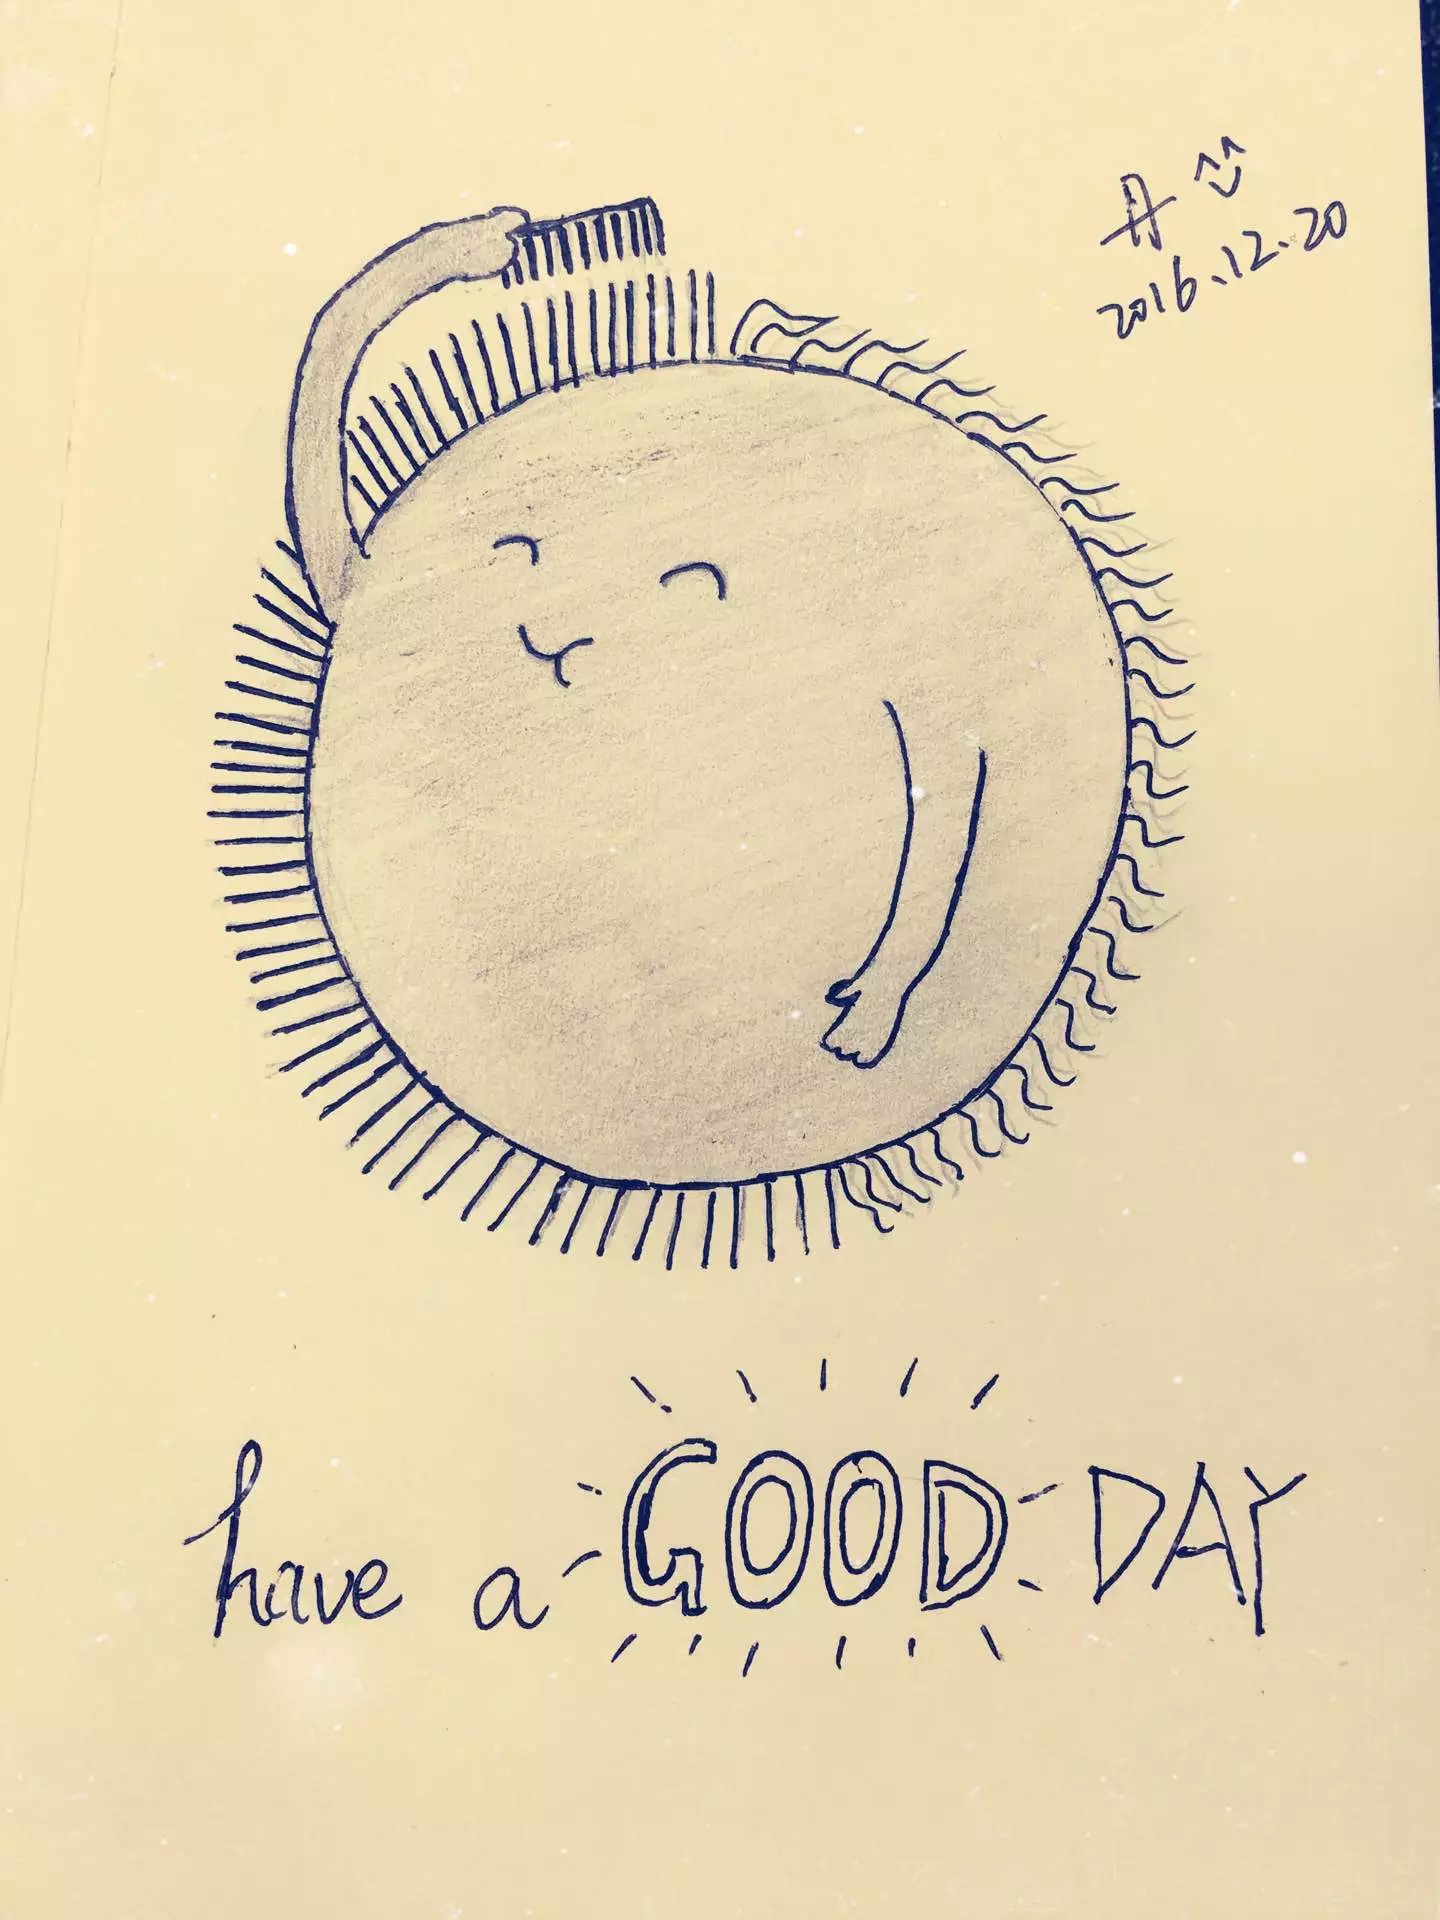 丹
2016.12.20
have a GOOD DAY